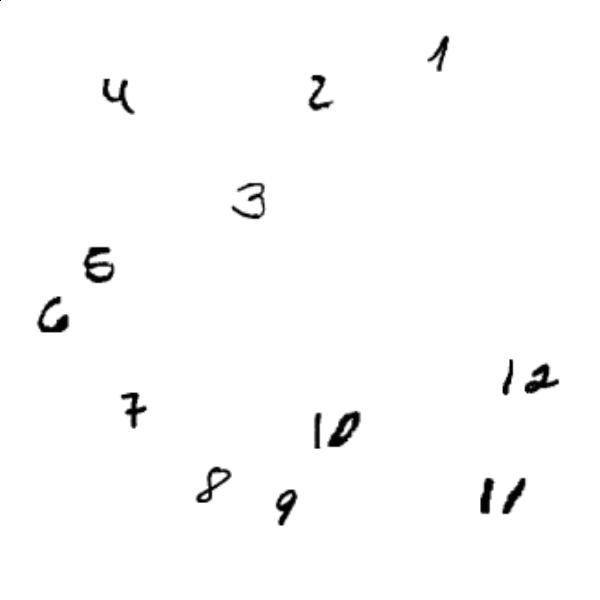 1
4 2
3
5
6
12
7
10
8 9 11